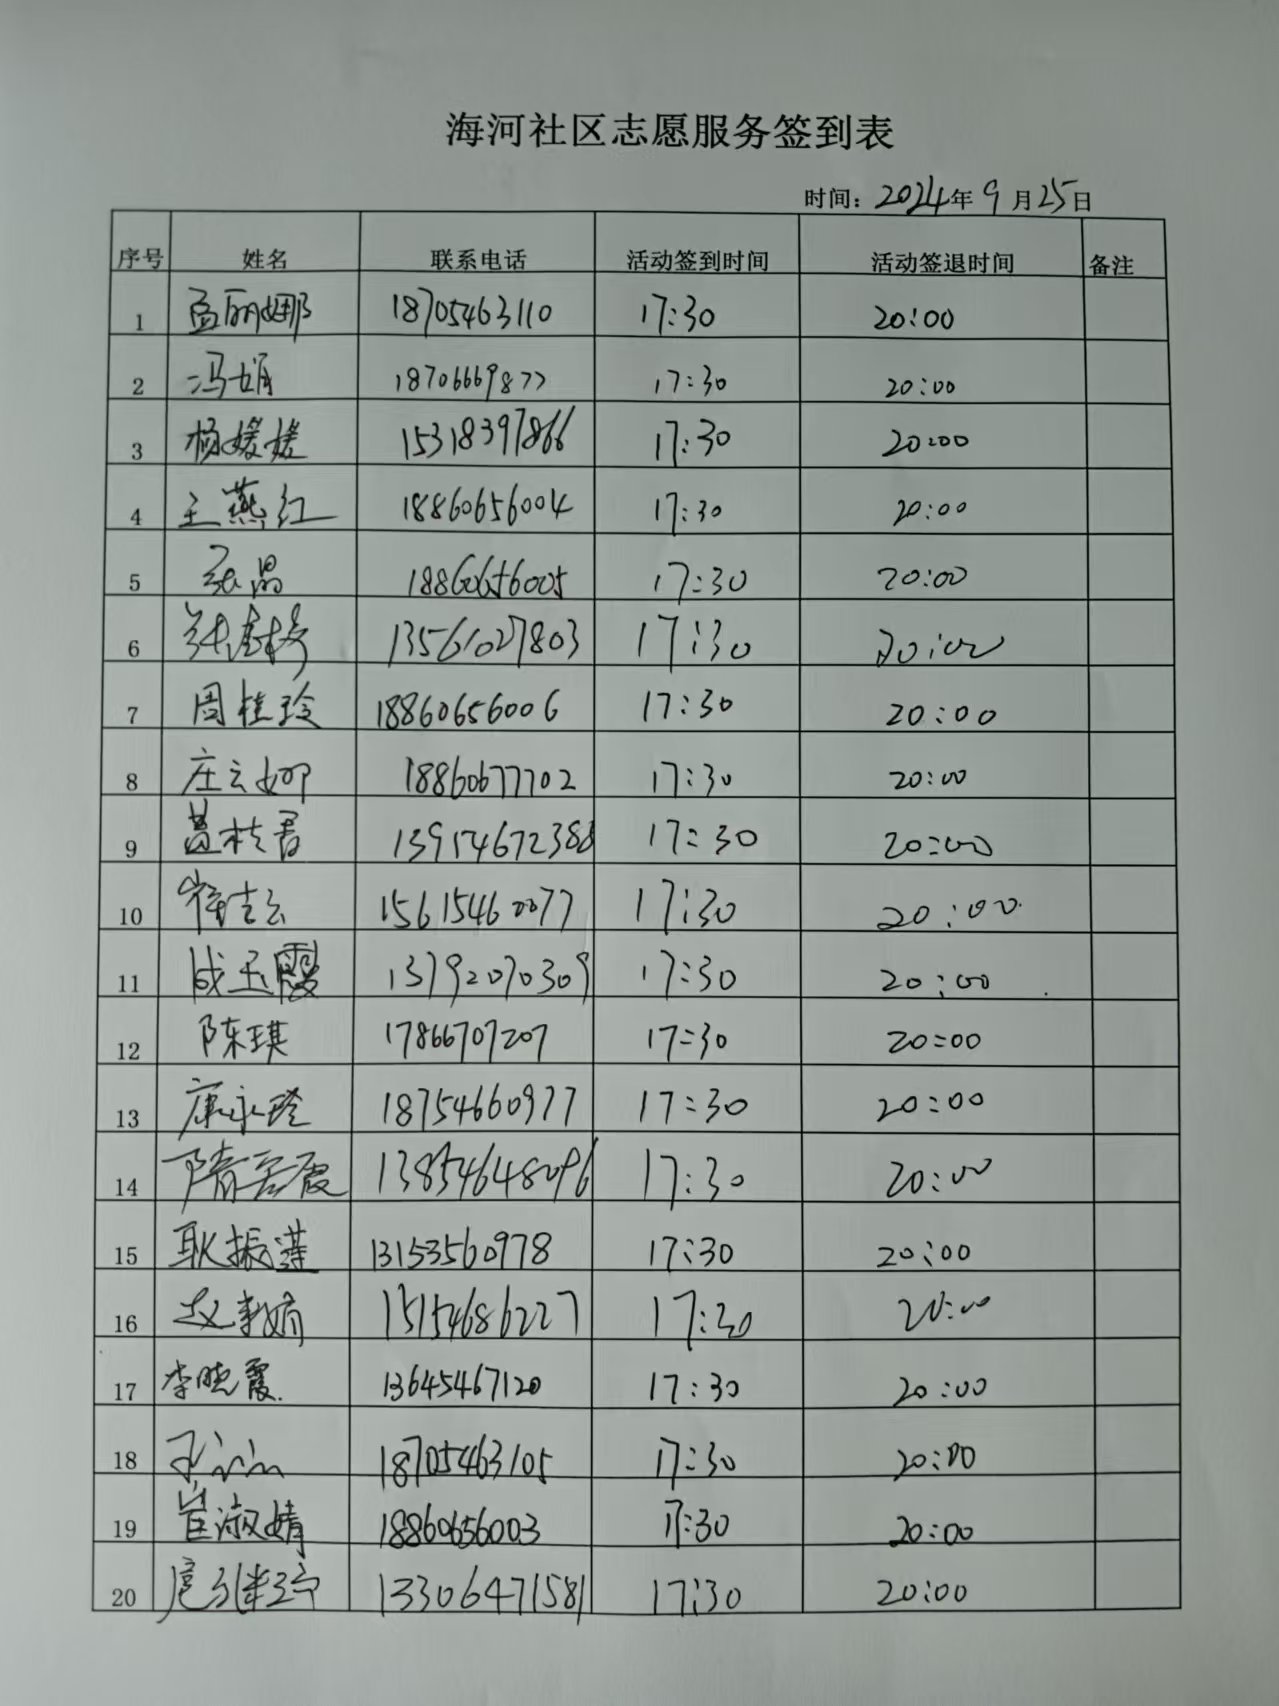 海河社区志愿服务签到表
时间：2024年9月25日
序号 姓名 联系电话 活动签到时间 活动签退时间 备注
1 孟丽娜 18705463110 17:30 20:00
2 冯娟 18706669877 17:30 20:00
3 杨媛媛 15318397866 17:30 20:00
4 王燕红 18860656004 17:30 20:00
5 张晶 18860656005 17:30 20:00
6 13561027803 17:30 20:00
7 周桂玲 18860656006 17:30 20:00
8 庄云卿 18860677702 17:30 20:00
9 葛枝君 13954672388 17:30 20:00
10 15615460077 17:30 20:00
11 成玉霞 13792070309 17:30 20:00
12 陈琪 17866707207 17:30 20:00
13 康永玲 18754660977 17:30 20:00
14 隋云霞 13854648096 17:30 20:00
15 耿振莲 13153560978 17:30 20:00
16 赵 娟 15154686227 17:30 20:00
17 李晓霞 13645467120 17:30 20:00
18 18705463105 17:30 20:00
19 崔淑婧 18860656003 17:30 20:00
20 13306471581 17:30 20:00